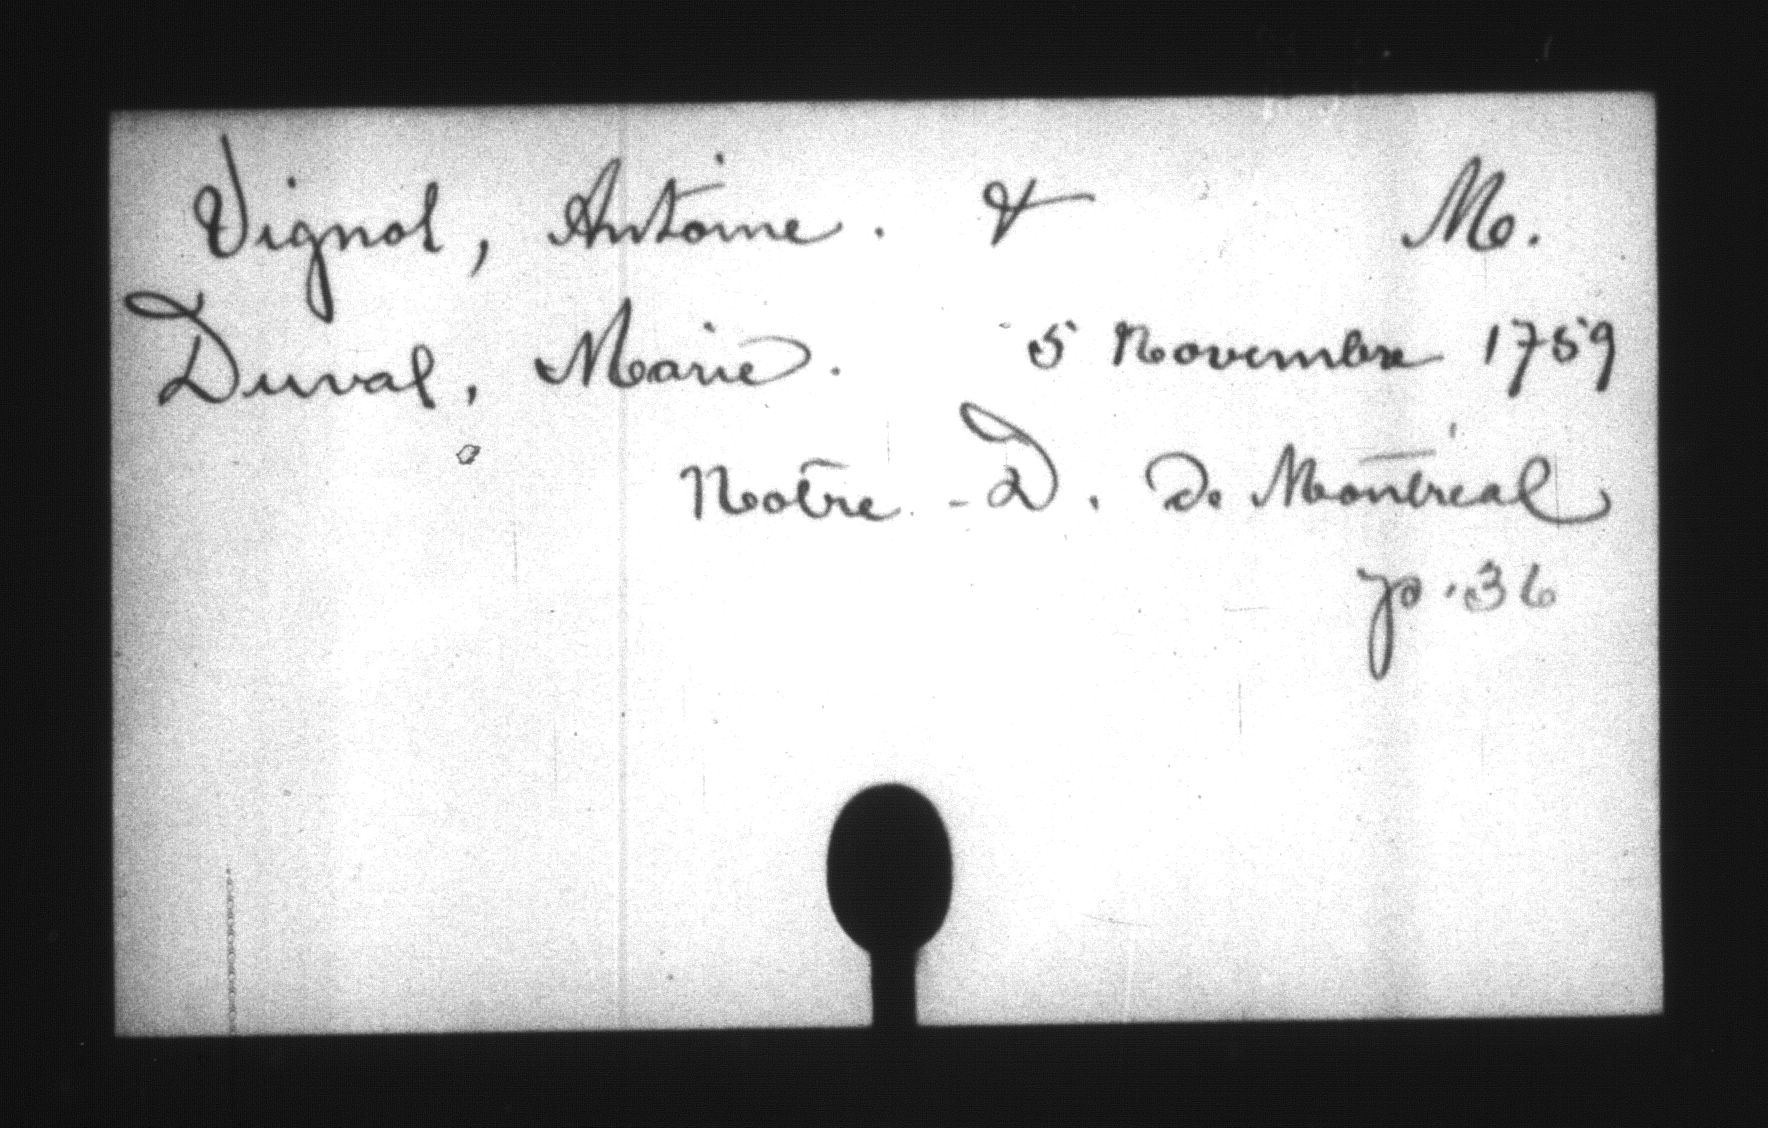 Vignol, Antoine. & M.
Duval, Marie. 5 Novembre 1759
Notre-D. de Montréal
p. 36